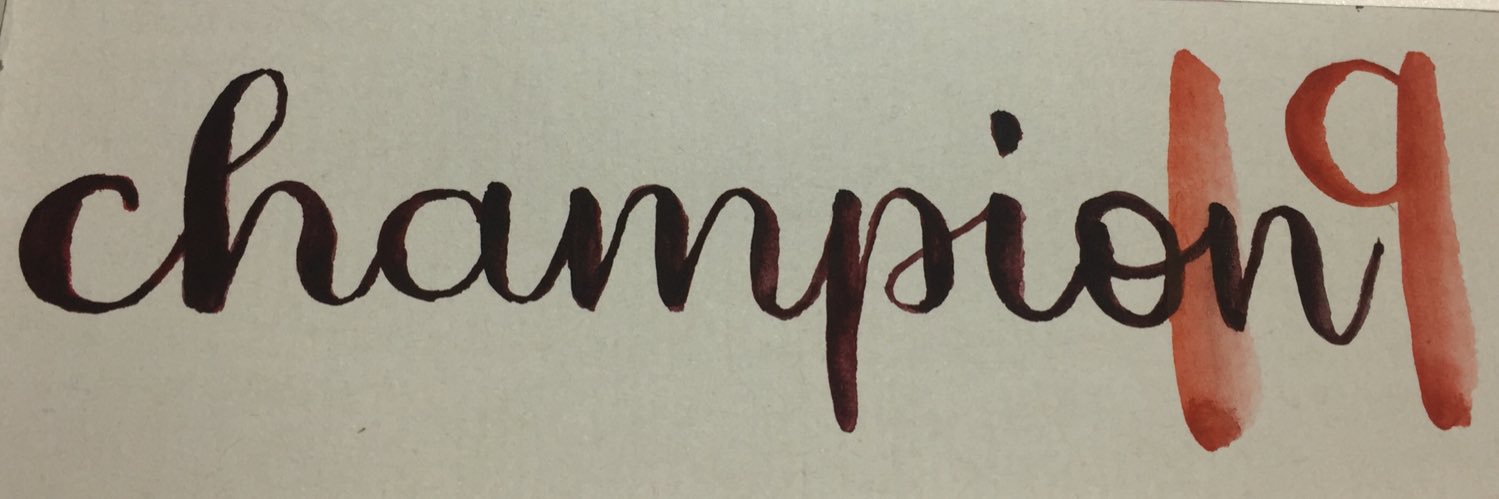 champion 19